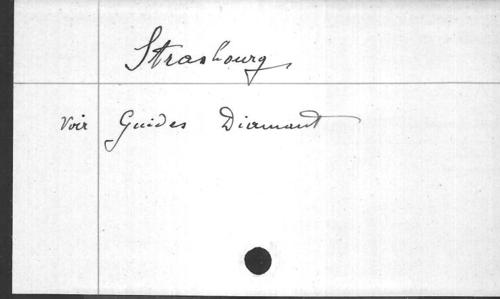 Strasbourg
Voir Guides Diamant